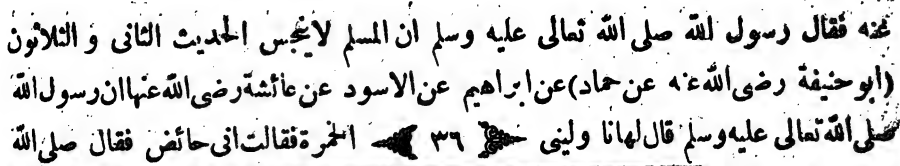 عنه فقال رسول الله صلى الله تعالى عليه وسلم ان المسلم لاينجس الحديث الثانى و الثلاثون
(ابو حنيفة رضى الله عنه عن حماد) عن ابراهيم عن الاسود عن عائشة رضى الله عنها ان رسول الله
صلى الله تعالى عليه وسلم قال لها نا وليني ٣٦ الخمرة فقالت انى حائض فقال صلى الله